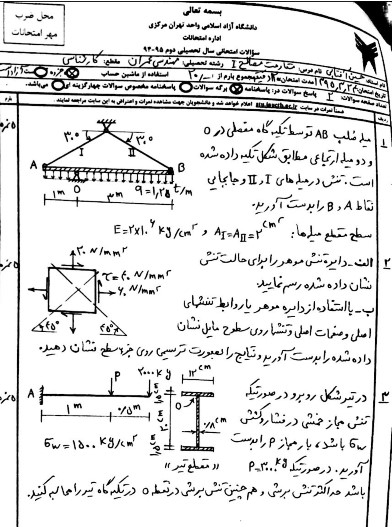 بسمه تعالی
دانشگاه آزاد اسلامی واحد تهران مرکزی
اداره امتحانات
سوالات امتحانی سال تحصیلی دوم ۹۵-۹۴
محل ضرب
مهر امتحانات
نام درس: مقاومت مصالح ۱ رشته تحصیلی: مهندسی عمران مقطع: کارشناسی
استفاده از ماشین حساب
پاسخ سوالات در: پاسخنامه برگه سوالات پاسخنامه مخصوص سوالات چهارگزینه ای می‌باشد.
۱
میله صلب AB توسط تکیه‌گاه مفصلی در O
و دو میله ارتباعی مطابق شکل تکیه داده شده
است. تنش در میله‌های I و II و جابجایی
نقاط A و B را بدست آورید.
سطح مقطع میله‌ها: A_I=A_II=۲cm² و E=۲×۱۰⁶ kg/cm²
۳۰° ۳۰°
I II
A B
O
۱m ۳m q=۱,۲۵ t/m
۲
الف- دایره تنش موهر را برای حالت تنش
نشان داده شده رسم نمایید.
ب- با استفاده از دایره موهر یا روابط تنشهای
اصلی و صفحات اصلی و تنشها روی سطوح مایل نشان
داده شده را بدست آورید و نتایج را بصورت ترسیمی روی جزء سطح نشان دهید.
۲۰ N/mm²
τ=۴۰ N/mm²
۶۰ N/mm²
۴۵° ۴۵°
۳
در تیر شکل روبرو در صورتیکه
تنش مجاز خمشی در فشار و کشش
σw باشد، بار مجاز P را بدست
آورید. در صورتیکه P=۳۰۰kg
باشد حداکثر تنش برشی و همچنین تنش برشی در نقطه O در تکیه‌گاه تیر را محاسبه کنید.
A P ۲۰۰۰kg
۱m ۰/۵m
σw=۱۵۰۰ kg/cm²
۱۲cm
O
۰/۸cm
"مقطع تیر"